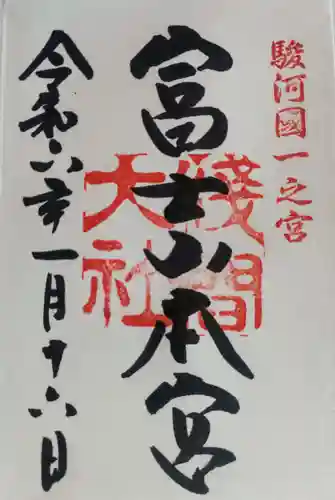 駿河國一之宮
富士山本宮
淺間大社
令和六年一月十六日